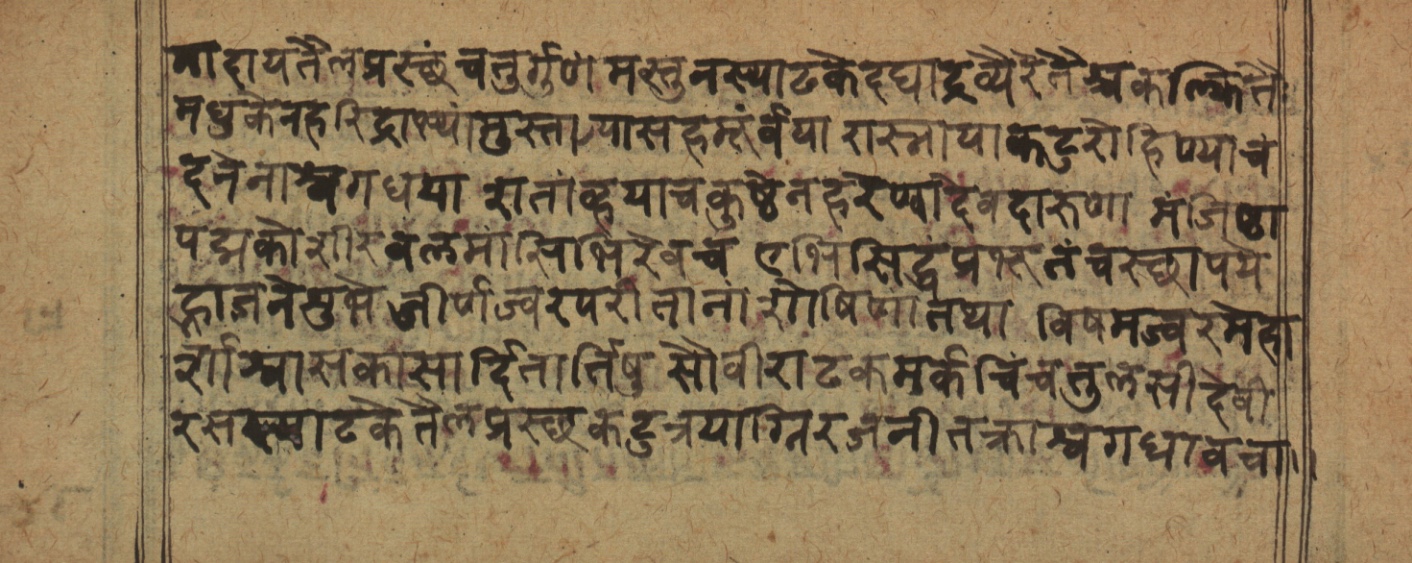 मादायतैलप्रस्छं चतुर्गुणे मस्तुनस्याढकेदद्याद्रव्यैरेतैश्चकल्कितैः
मधुकेनहरिद्राभ्यां मुस्तायासहमूर्वया रास्नायाकटुरोहिण्याच
दनेनाश्वगधया शताव्हयाचकुष्ठेनहरेण्वादेवदारुणा मंजिष्ठा
पद्मकोशीरवलमांसिभिरेवच एभिसिद्धप्रभूतंचस्छापये
द्भाजनेसुभे जीर्णज्वरपरीतानां शोषिणातथा विषमज्वरमेहा
र्शाश्वासकासार्दितार्तिषु सौवीराढकमर्कचिंचतुलसीदेवी
रसस्याढकेतैलप्रस्छकटुत्रयाग्निरजनीतक्राश्वगधावचा॥